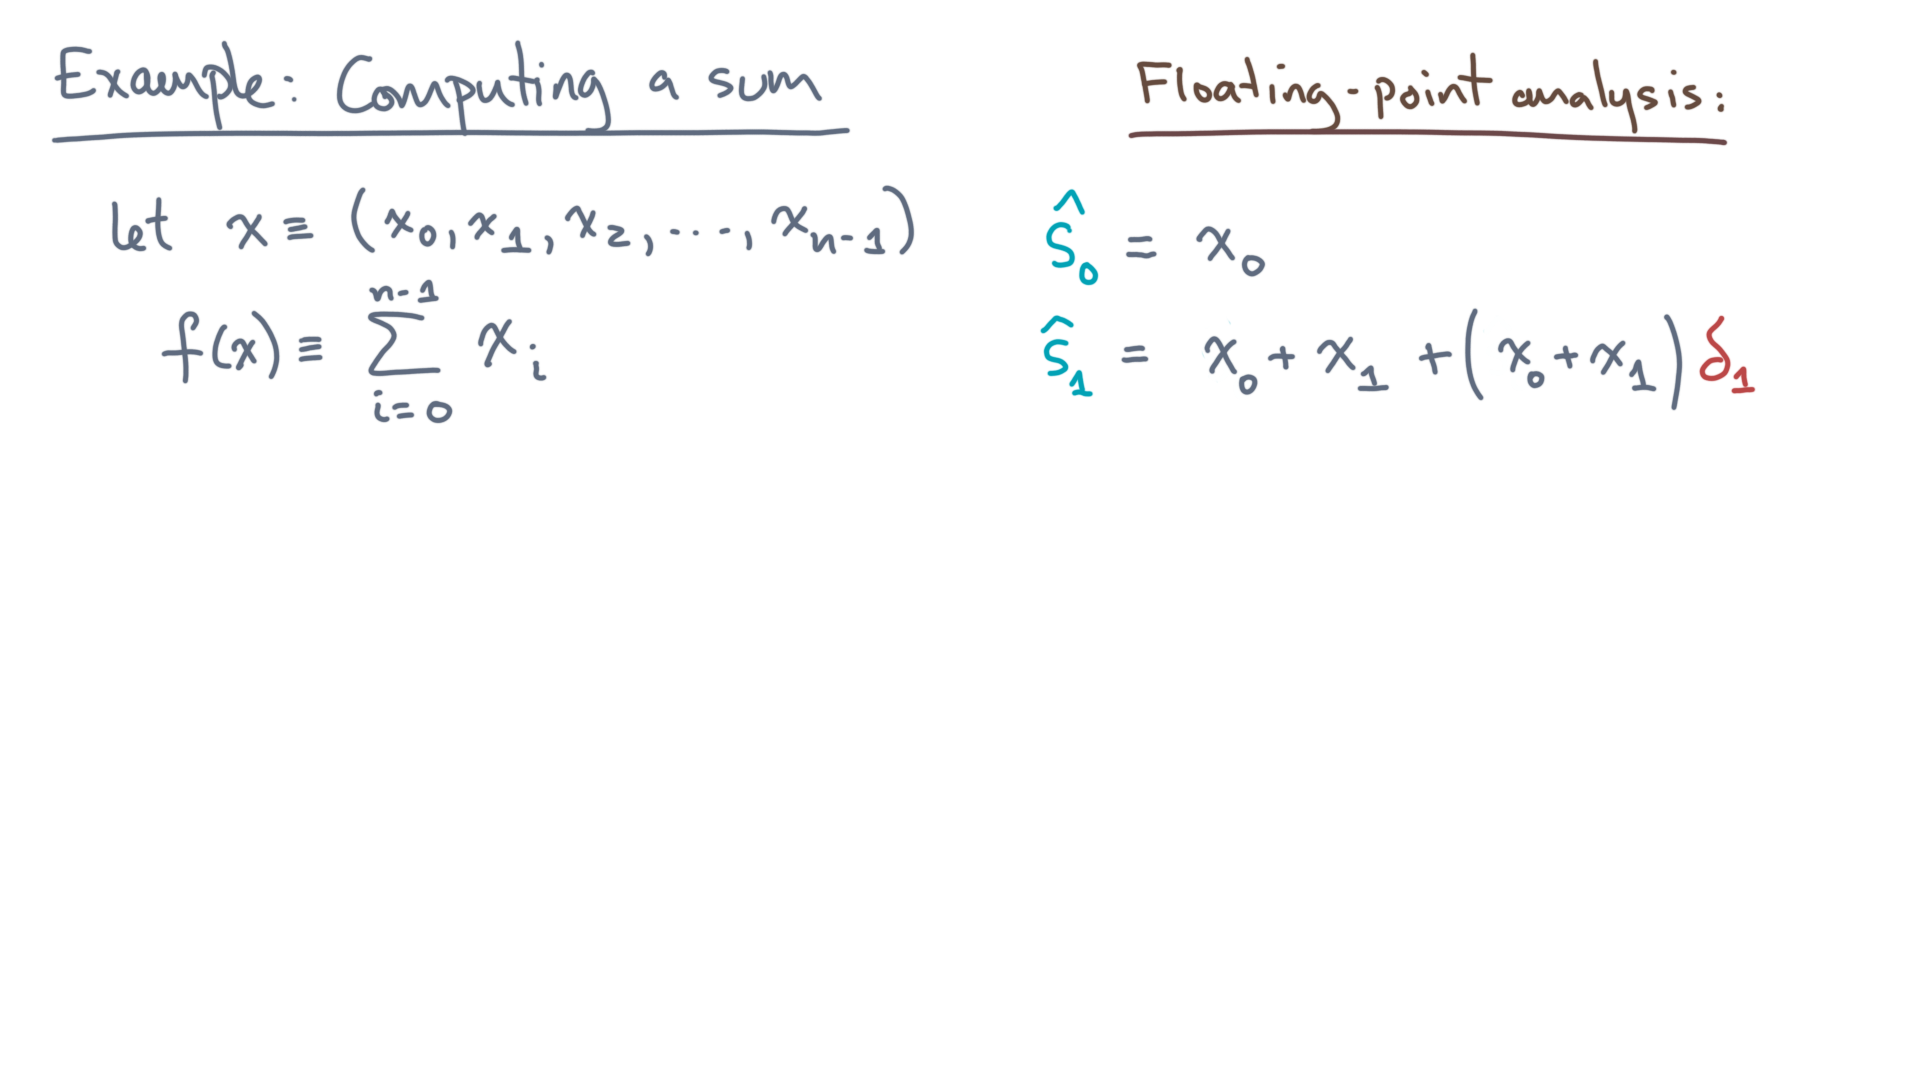 Example: Computing a sum
let x ≡ (x₀, x₁, x₂, ..., xₙ₋₁)
f(x) ≡ ∑_{i=0}^{n-1} xᵢ
Floating-point analysis:
ŝ₀ = x₀
ŝ₁ = x₀ + x₁ + (x₀ + x₁) δ₁